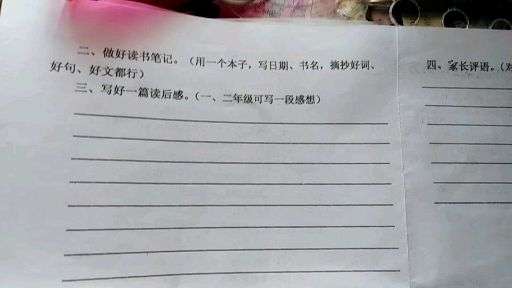 二、做好读书笔记。（用一个本子，写日期、书名，摘抄好词、
好句、好文都行）
三、写好一篇读后感。（一、二年级可写一段感想）
四、家长评语。（对